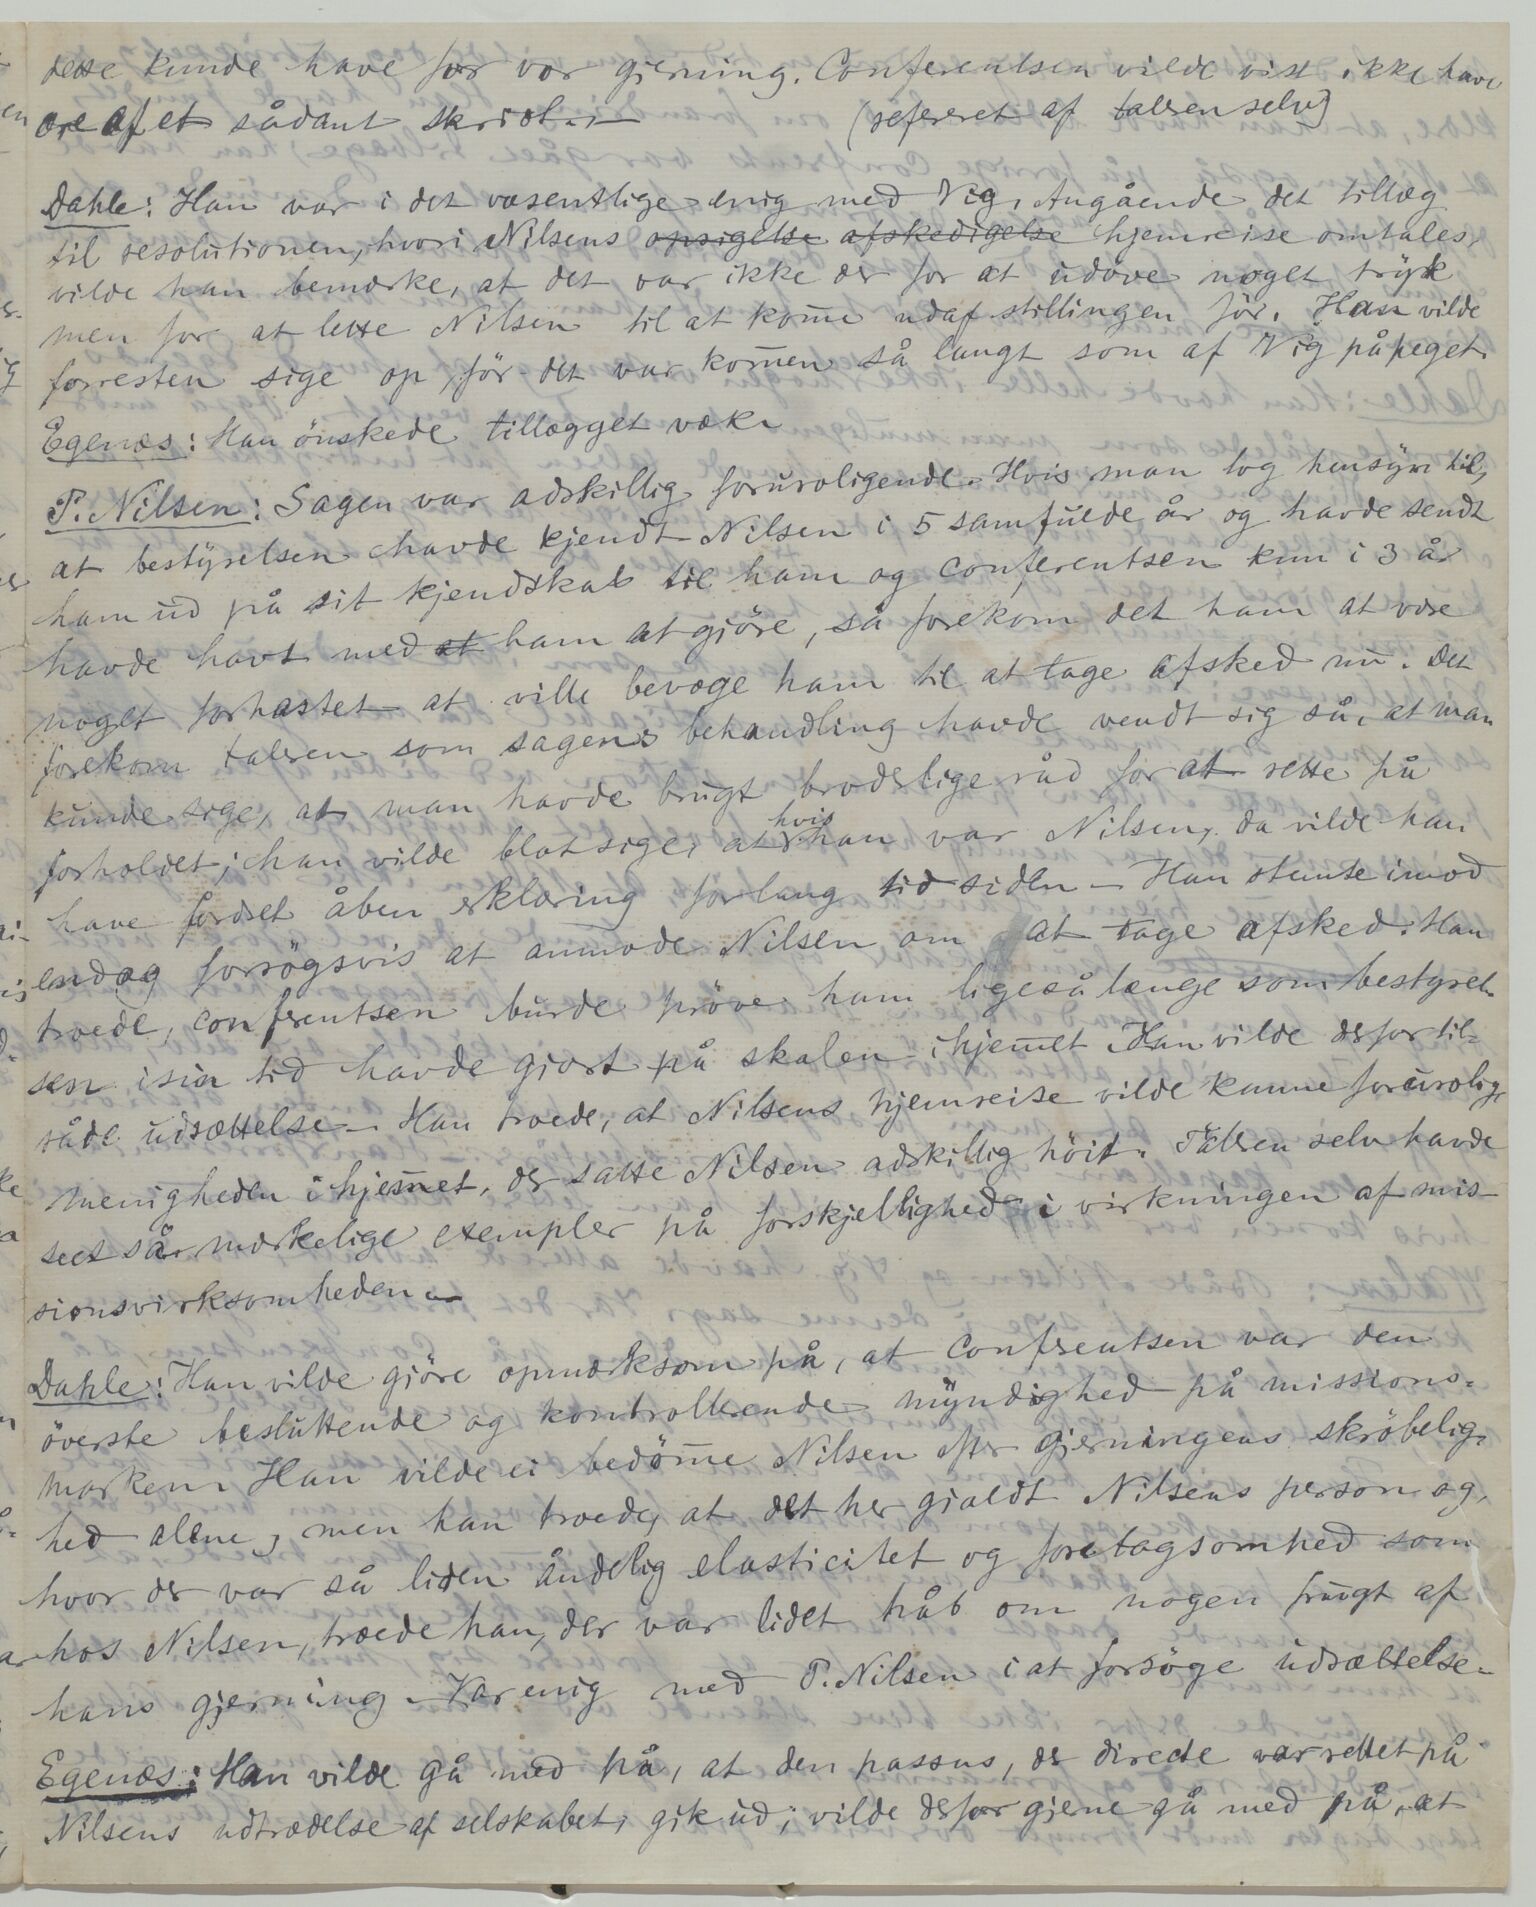 dette kunde have for vor gjerning. Conferentsen vilde vist ikke have
ære af et sådant skridt.—
(refereret af taleren selv)
Dahle: Han var i det væsentlige enig med Vig. Angående det tillæg
til resolutionen, hvori Nilsens opsigelse afskedigelse hjemreise omtales,
vilde han bemærke, at det var ikke der for at udøve noget tryk
men for at lette Nilsen til at kom̅e udaf stillingen før. Han vilde
forresten sige op, før det var kom̅en så langt som af Vig påpeget.
Egenæs: Han önskede tillægget væk.
P. Nilsen: Sagen var adskillig foruroligende. Hvis man tog hensyn til,
at bestyrelsen havde kjendt Nilsen i 5 samfulde år og havde sendt
ham ud på sit kjendskab til ham og conferentsen kun i 3 år
havde havt med at ham at gjöre, så forekom det ham at være
noget forhastet at ville bevæge ham til at tage afsked nu. Det
forekom taleren som sagens behandling havde vendt sig så, at man
kunde sige, at man havde brugt broderlige råd for at rette på
forholdet; han vilde blot sige, at hvis han var Nilsen, da vilde han
have fordret åben erklæring for lang tid siden — Han stemte imod
endog forsögsvis at anmode Nilsen om at tage afsked. Han
troede, conferentsen burde pröve ham ligeså længe som bestyrel-
sen i sin tid havde gjort på skolen i hjem̅et. Han vilde derfor til-
råde udsættelse — Han troede, at Nilsens hjemreise vilde kunne forurolige
menigheden i hjem̅et, der satte Nilsen adskillig höit. Taleren selv havde
seet så mærkelige exempler på forskjellighed i virkningen af mis-
sionsvirksomheden.—
Dahle: Han vilde gjöre opmærksom på, at conferentsen var den
överste besluttende og kontrollerende myndighed på missions-
marken. Han vilde ei bedöm̅e Nilsen efter gjerningens skröbelig-
hed alene, men han troede, at det her gjaldt Nilsens person og,
hvor der var så liden åndelig elasticitet og foretagsomhed som
hos Nilsen, troede han, der var lidet håb om nogen frugt af
hans gjerning. Var enig med P. Nilsen i at forsöge udsættelse.
Egenæs: Han vilde gå med på, at den passus, der directe var rettet på
Nilsens udtrædelse af selskabet, gik ud; vilde derfor gjerne gå med på, at